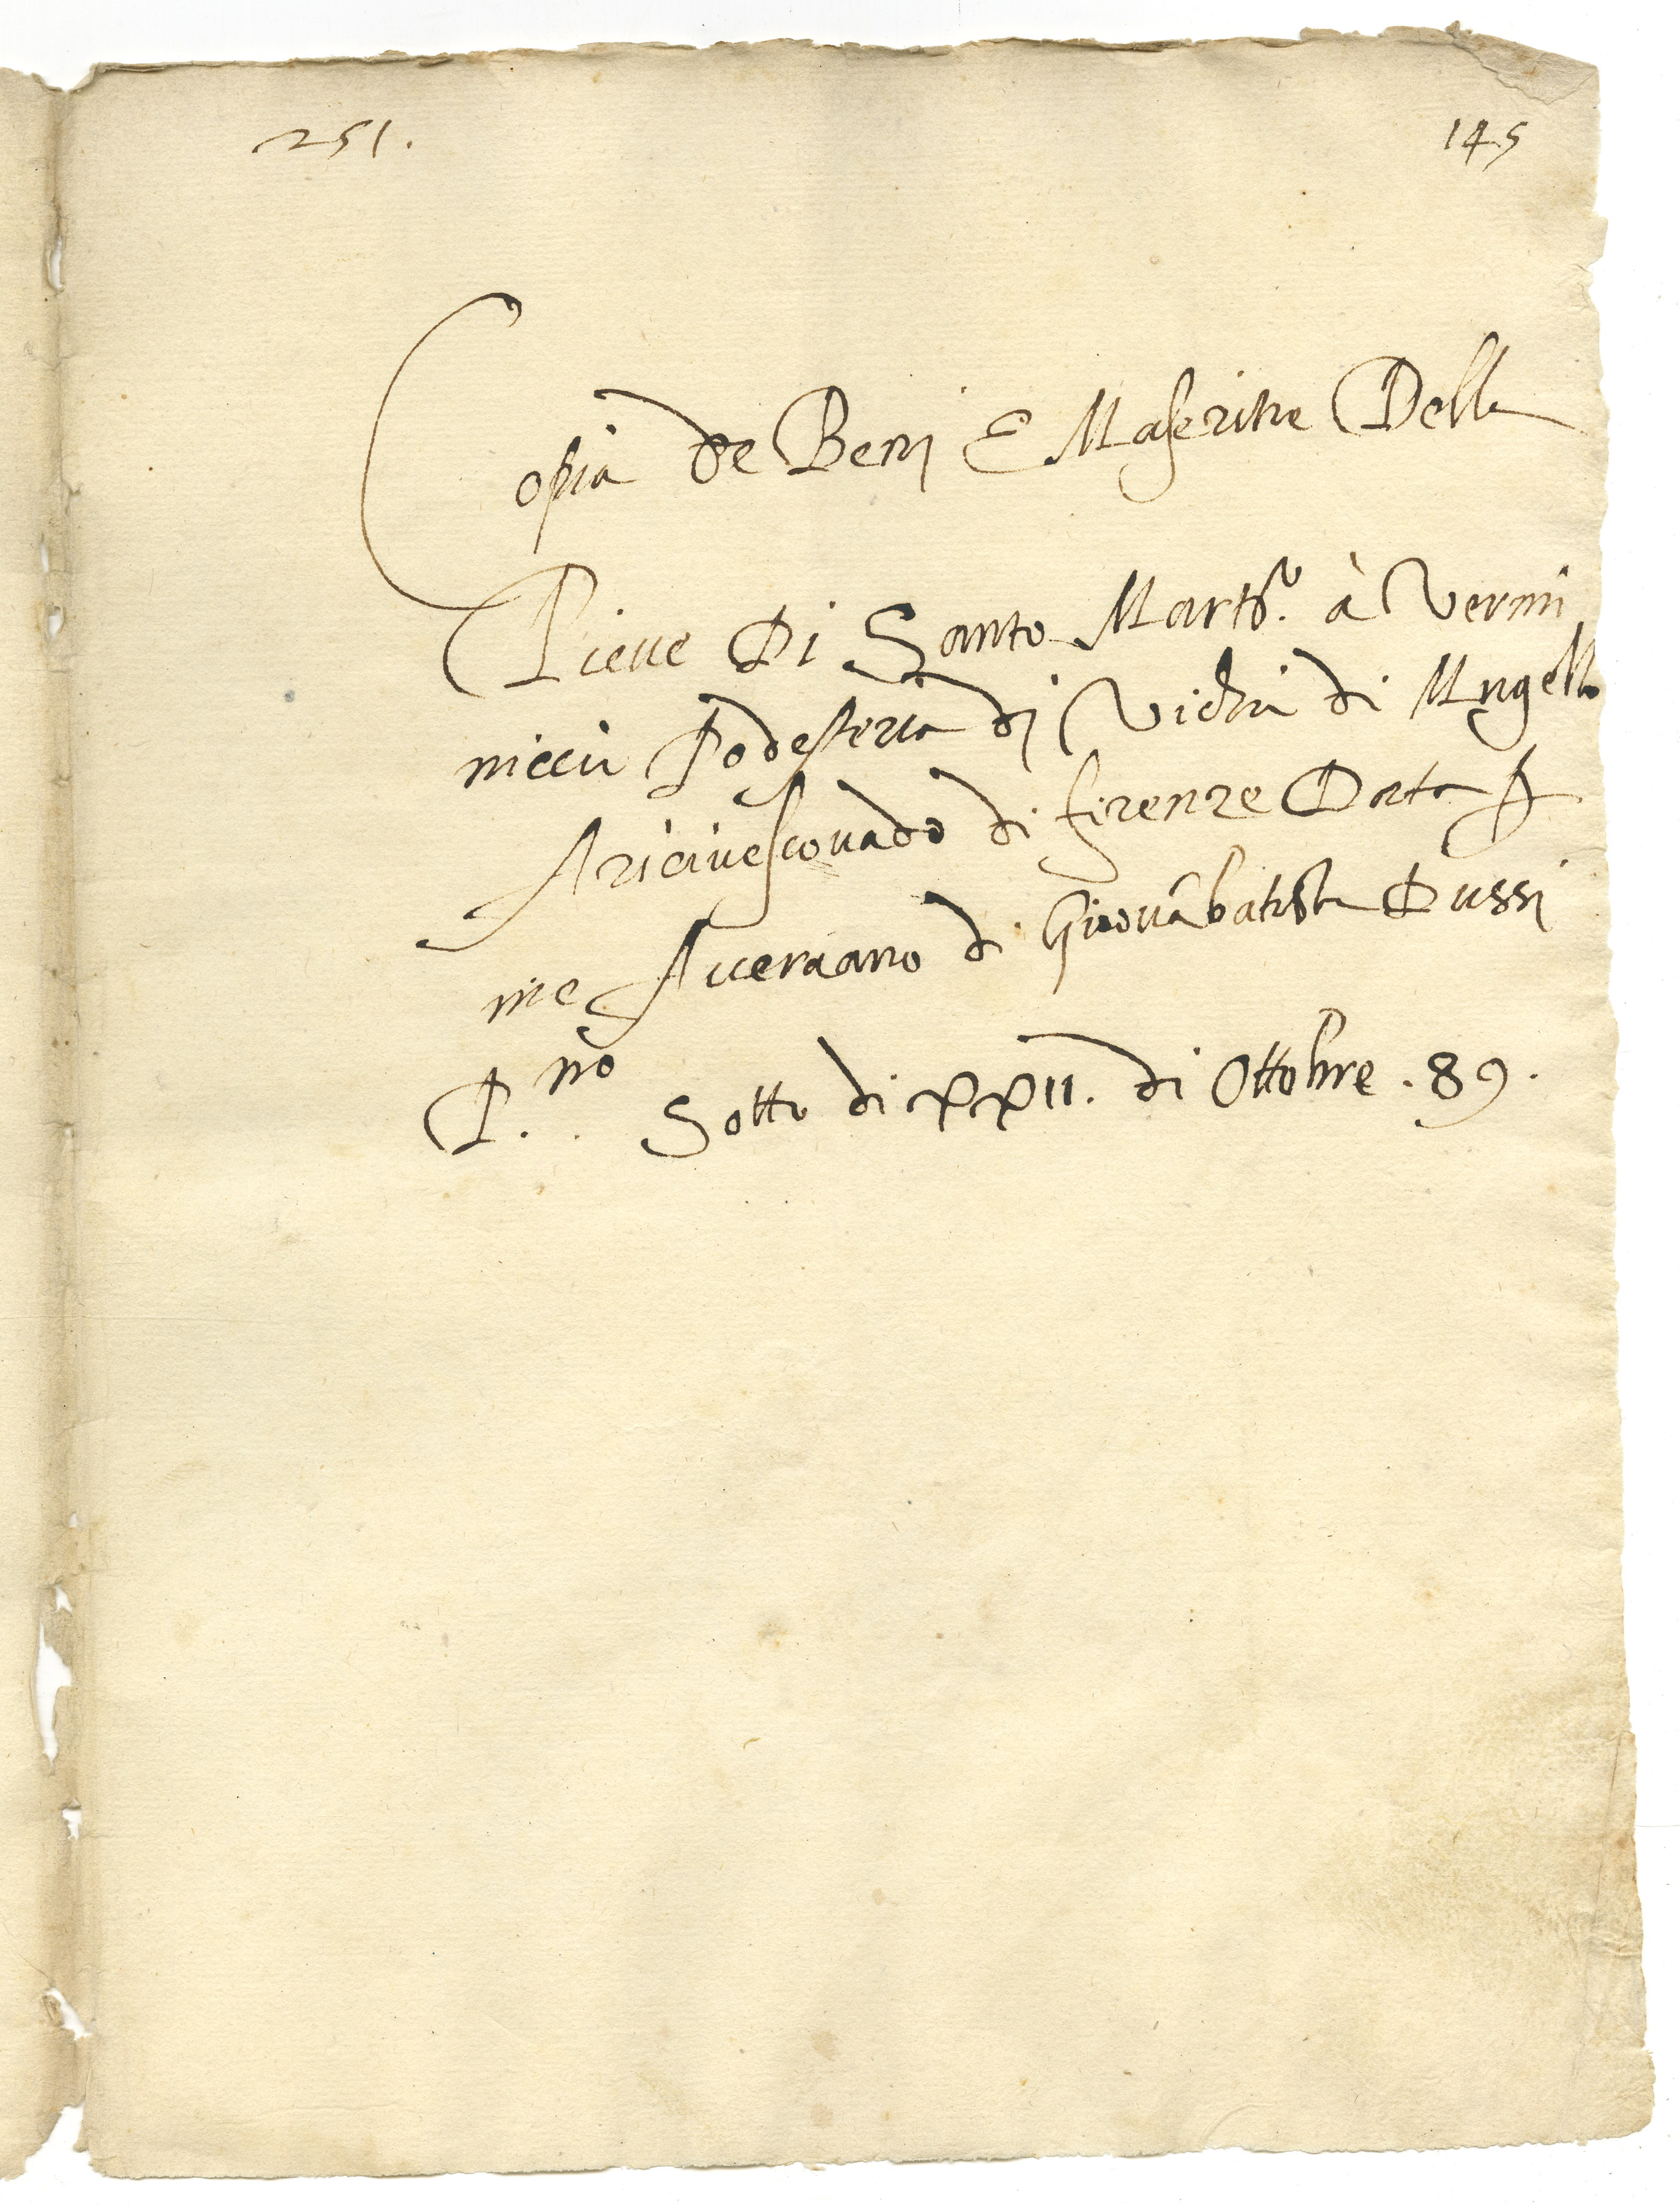 251.
145
Copia de Beni E Maseritie Della
Pieue Di Santo Martº. à Vermi
niccio Podesteria di Vichio di Mugello
Arciuescouado di firenze Data p
me Aueraano di Giouãbatista Dussi
P.no Sotto di xxii. di Ottobre . 89.